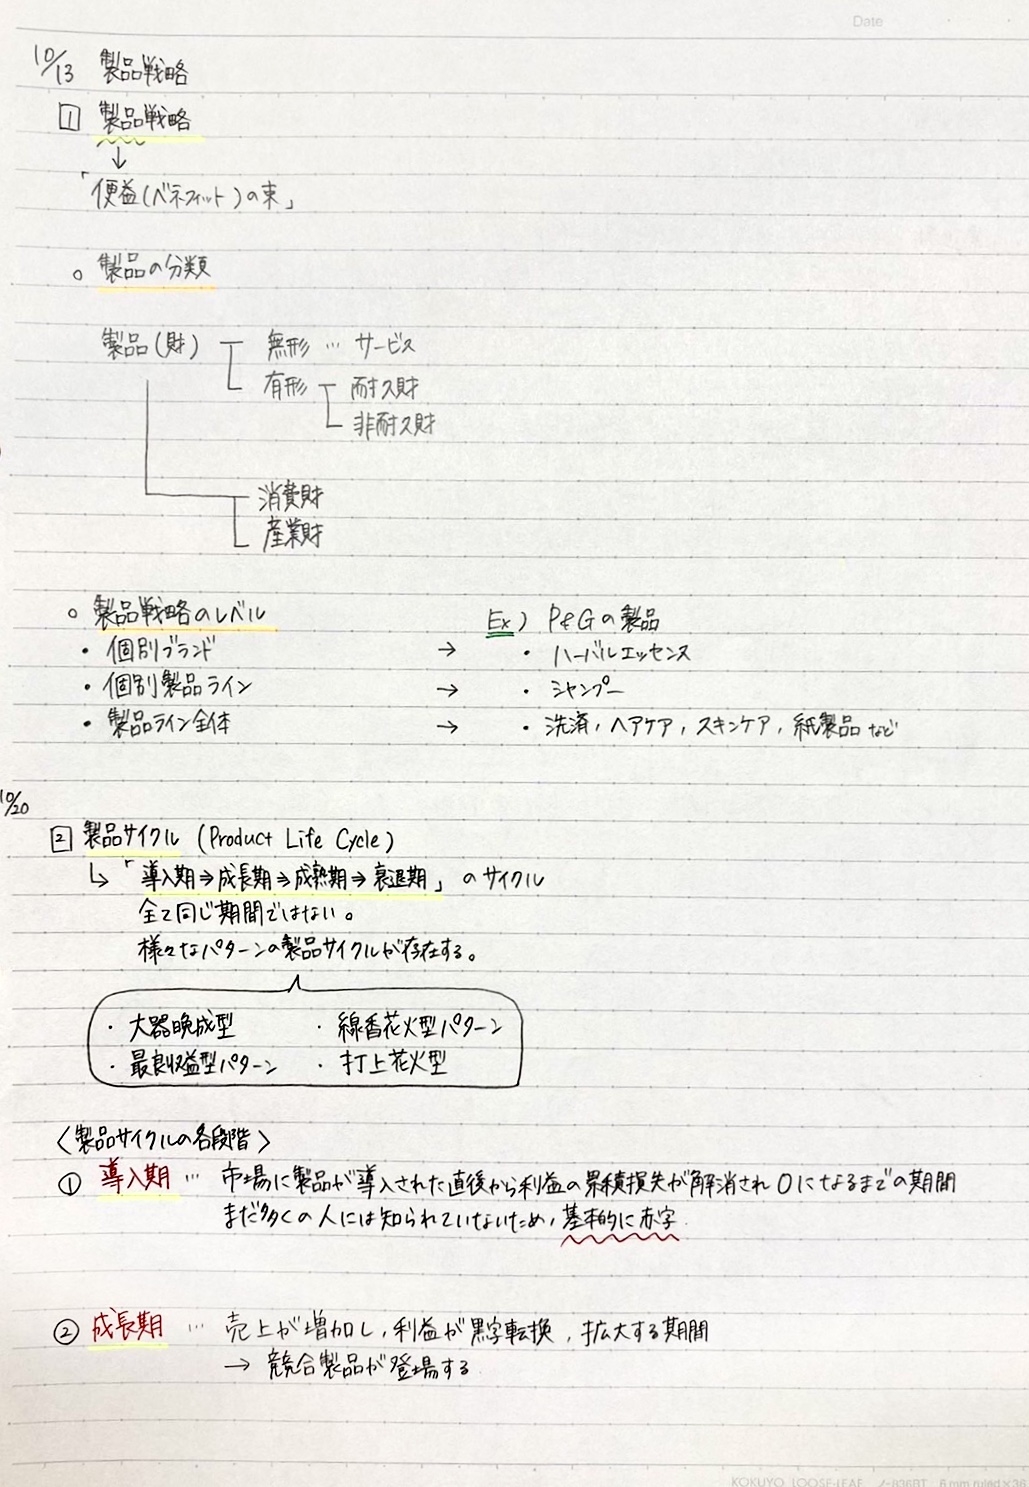 Date
10/13 製品戦略
1 製品戦略
↓
「便益(ベネフィット)の束」
○ 製品の分類
製品(財) 無形 … サービス
有形 耐久財
非耐久財
消費財
産業財
○ 製品戦略のレベル Ex) P&Gの製品
・個別ブランド → ・ハーバルエッセンス
・個別製品ライン → ・シャンプー
・製品ライン全体 → ・洗済, ヘアケア, スキンケア, 紙製品 など
10/20
2 製品サイクル (Product Life Cycle)
↳「導入期⇒成長期⇒成熟期⇒衰退期」のサイクル
全て同じ期間ではない。
様々なパターンの製品サイクルが存在する。
・大器晩成型 ・線香花火型パターン
・最良収益型パターン ・打上花火型
〈製品サイクルの各段階〉
① 導入期 … 市場に製品が導入された直後から利益の累積損失が解消され0になるまでの期間
まだ多くの人には知られていないため, 基本的に赤字.
② 成長期 … 売上が増加し, 利益が黒字転換, 拡大する期間
→ 競合製品が登場する
KOKUYO LOOSE-LEAF ノ-836BT 6mm ruled×36